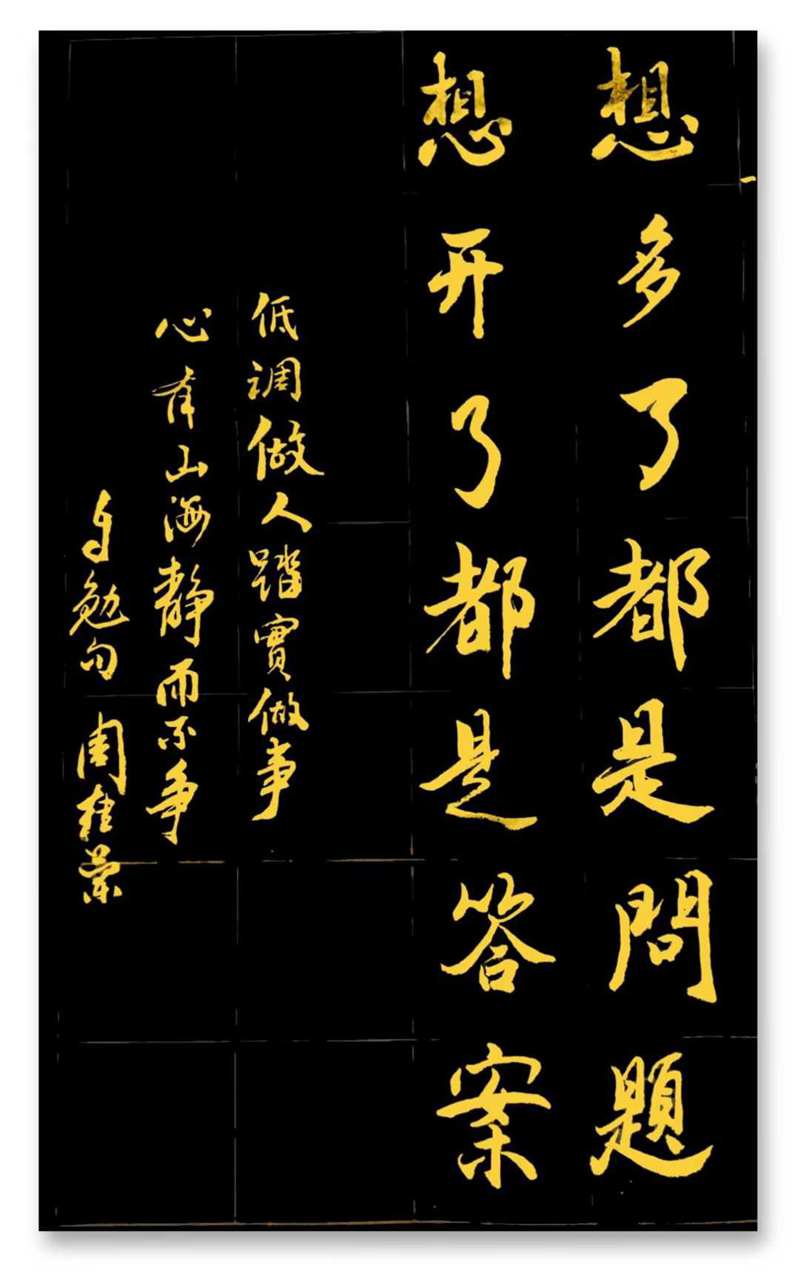 想多了都是問題
想开了都是答案
低调做人踏實做事
心有山海静而不争
自勉句 周桂荣